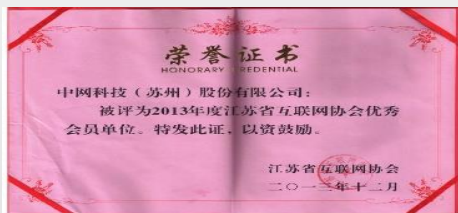 荣誉证书
HONORARY CREDENTIAL
中网科技（苏州）股份有限公司：
被评为2013年度江苏省互联网协会优秀
会员单位。特发此证，以资鼓励。
江苏省互联网协会
二〇一三年十二月